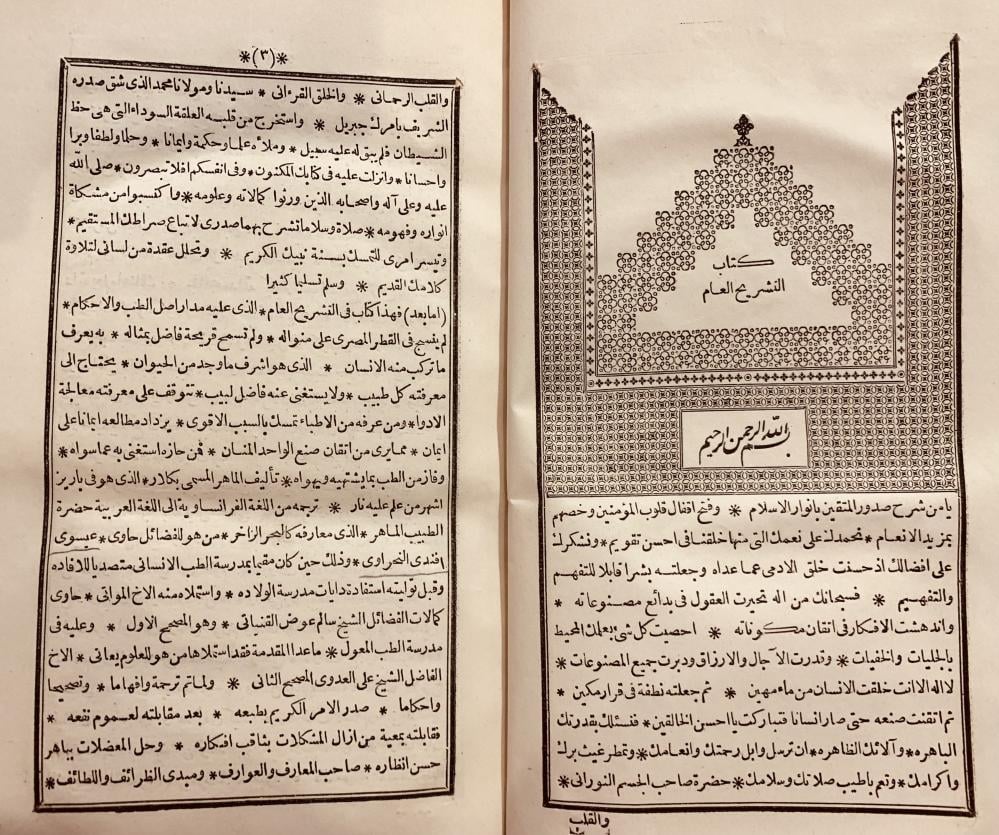 كتاب
التشريح العام
بسم الله الرحمن الرحيم
يامن شرح صدور المتقين بانوار الاسلام * وفتح اقفال قلوب المؤمنين وخصهم
بمزيد الانعام * نحمدك على نعمك التى منها خلقتنا فى احسن تقويم * ونشكرك
على افضالك اذ حسنت خلق الادمى عما عداه وجعلته بشرا قابلا للتفهم
والتفهيم * فسبحانك من اله تحيرت العقول فى بدائع مصنوعاته *
واندهشت الافكار فى اتقان مكوناته * احصيت كل شئ بعلمك المحيط
بالجليات والخفيات * وقدرت الآجال والارزاق ودبرت جميع المصنوعات *
لا اله الا انت خلقت الانسان من ماء مهين * ثم جعلته نطفة فى قرار مكين *
ثم اتقنت صنعه حتى صار انسانا فتباركت يا احسن الخالقين * فنسئلك بقدرتك
الباهره * وآلائك الظاهره * ان ترسل وابل رحمتك وانعامك * وتمطر غيث برك
واكرامك * وتعم باطيب صلاتك وسلامك * حضرة صاحب الجسم النورانى *
والقلب
*(٣)*
والقلب الرحمانى * والخلق القرءانى * سيدنا ومولانا محمد الذى شق صدره
الشريف بامرك جبريل * واستخرج من قلبه العلقة السوداء التى هى حظ
الشيطان فلم يبق له عليه سبيل * وملأه علما وحكمة وايمانا * وحلما ولطفا وبرا
واحسانا * وانزلت عليه فى كتابك المكنون * وفى انفسكم افلا تبصرون * صلى الله
عليه وعلى آله واصحابه الذين ورثوا كمالاته وعلومه * واكتسبوا من مشكاة
انواره وفهومه * صلاة وسلاما تشرح بهما صدرى لاتباع صراطك المستقيم *
وتيسر امرى للتمسك بسنة نبيك الكريم * وتحلل عقدة من لسانى لتلاوة
كلامك القديم * وسلم تسليما كثيرا
(اما بعد) فهذا كتاب فى التشريح العام * الذى عليه مدار اصل الطب والاحكام *
لم ينسج فى القطر المصرى على منواله * ولم تسمح قريحة فاضل بمثاله * به يعرف
ما تركب منه الانسان * الذى هو اشرف ما وجد من الحيوان * يحتاج الى
معرفته كل طبيب * ولا يستغنى عنه فاضل لبيب * تتوقف على معرفته معالجة
الادوا * ومن عرفه من الاطباء تمسك بالسبب الاقوى * يزداد مطالعه ايمانا على
ايمان * مما يرى من اتقان صنع الواحد المنان * فمن حازه استغنى به عما سواه *
وفاز من الطب بما يشتهيه ويهواه * تأليف الماهر المسمى بكلار * الذى هو فى باريز
اشهر من علم عليه نار * ترجمه من اللغة الفرانساوية الى اللغة العربيه حضرة
الطبيب الماهر * الذى معارفه كالبحر الزاخر * من هو للفضائل حاوى * عيسوى
افندى النحراوى * وذلك حين كان مقيما بمدرسة الطب الانسانى متصديا للافاده
وقبل توليته استفادة دايات مدرسة الولاده * واستملاه منه الاخ المواتى * حاوى
كمالات الفضائل الشيخ سالم عوض القنياتى * وهو المصحح الاول * وعليه فى
مدرسة الطب المعول * ماعدا المقدمة فقد استملاها من هو للعلوم يعانى * الاخ
الفاضل الشيخ على العدوى المصحح الثانى * ولما تم ترجمة وافهاما * وتصحيحا
واحكاما * صدر الامر الكريم بطبعه * بعد مقابلته لعموم نفعه *
فقابلته بمعية من ازال المشكلات بثاقب افكاره * وحل المعضلات بباهر
حسن انظاره * صاحب المعارف والعوارف * ومبدى الظرائف واللطائف *